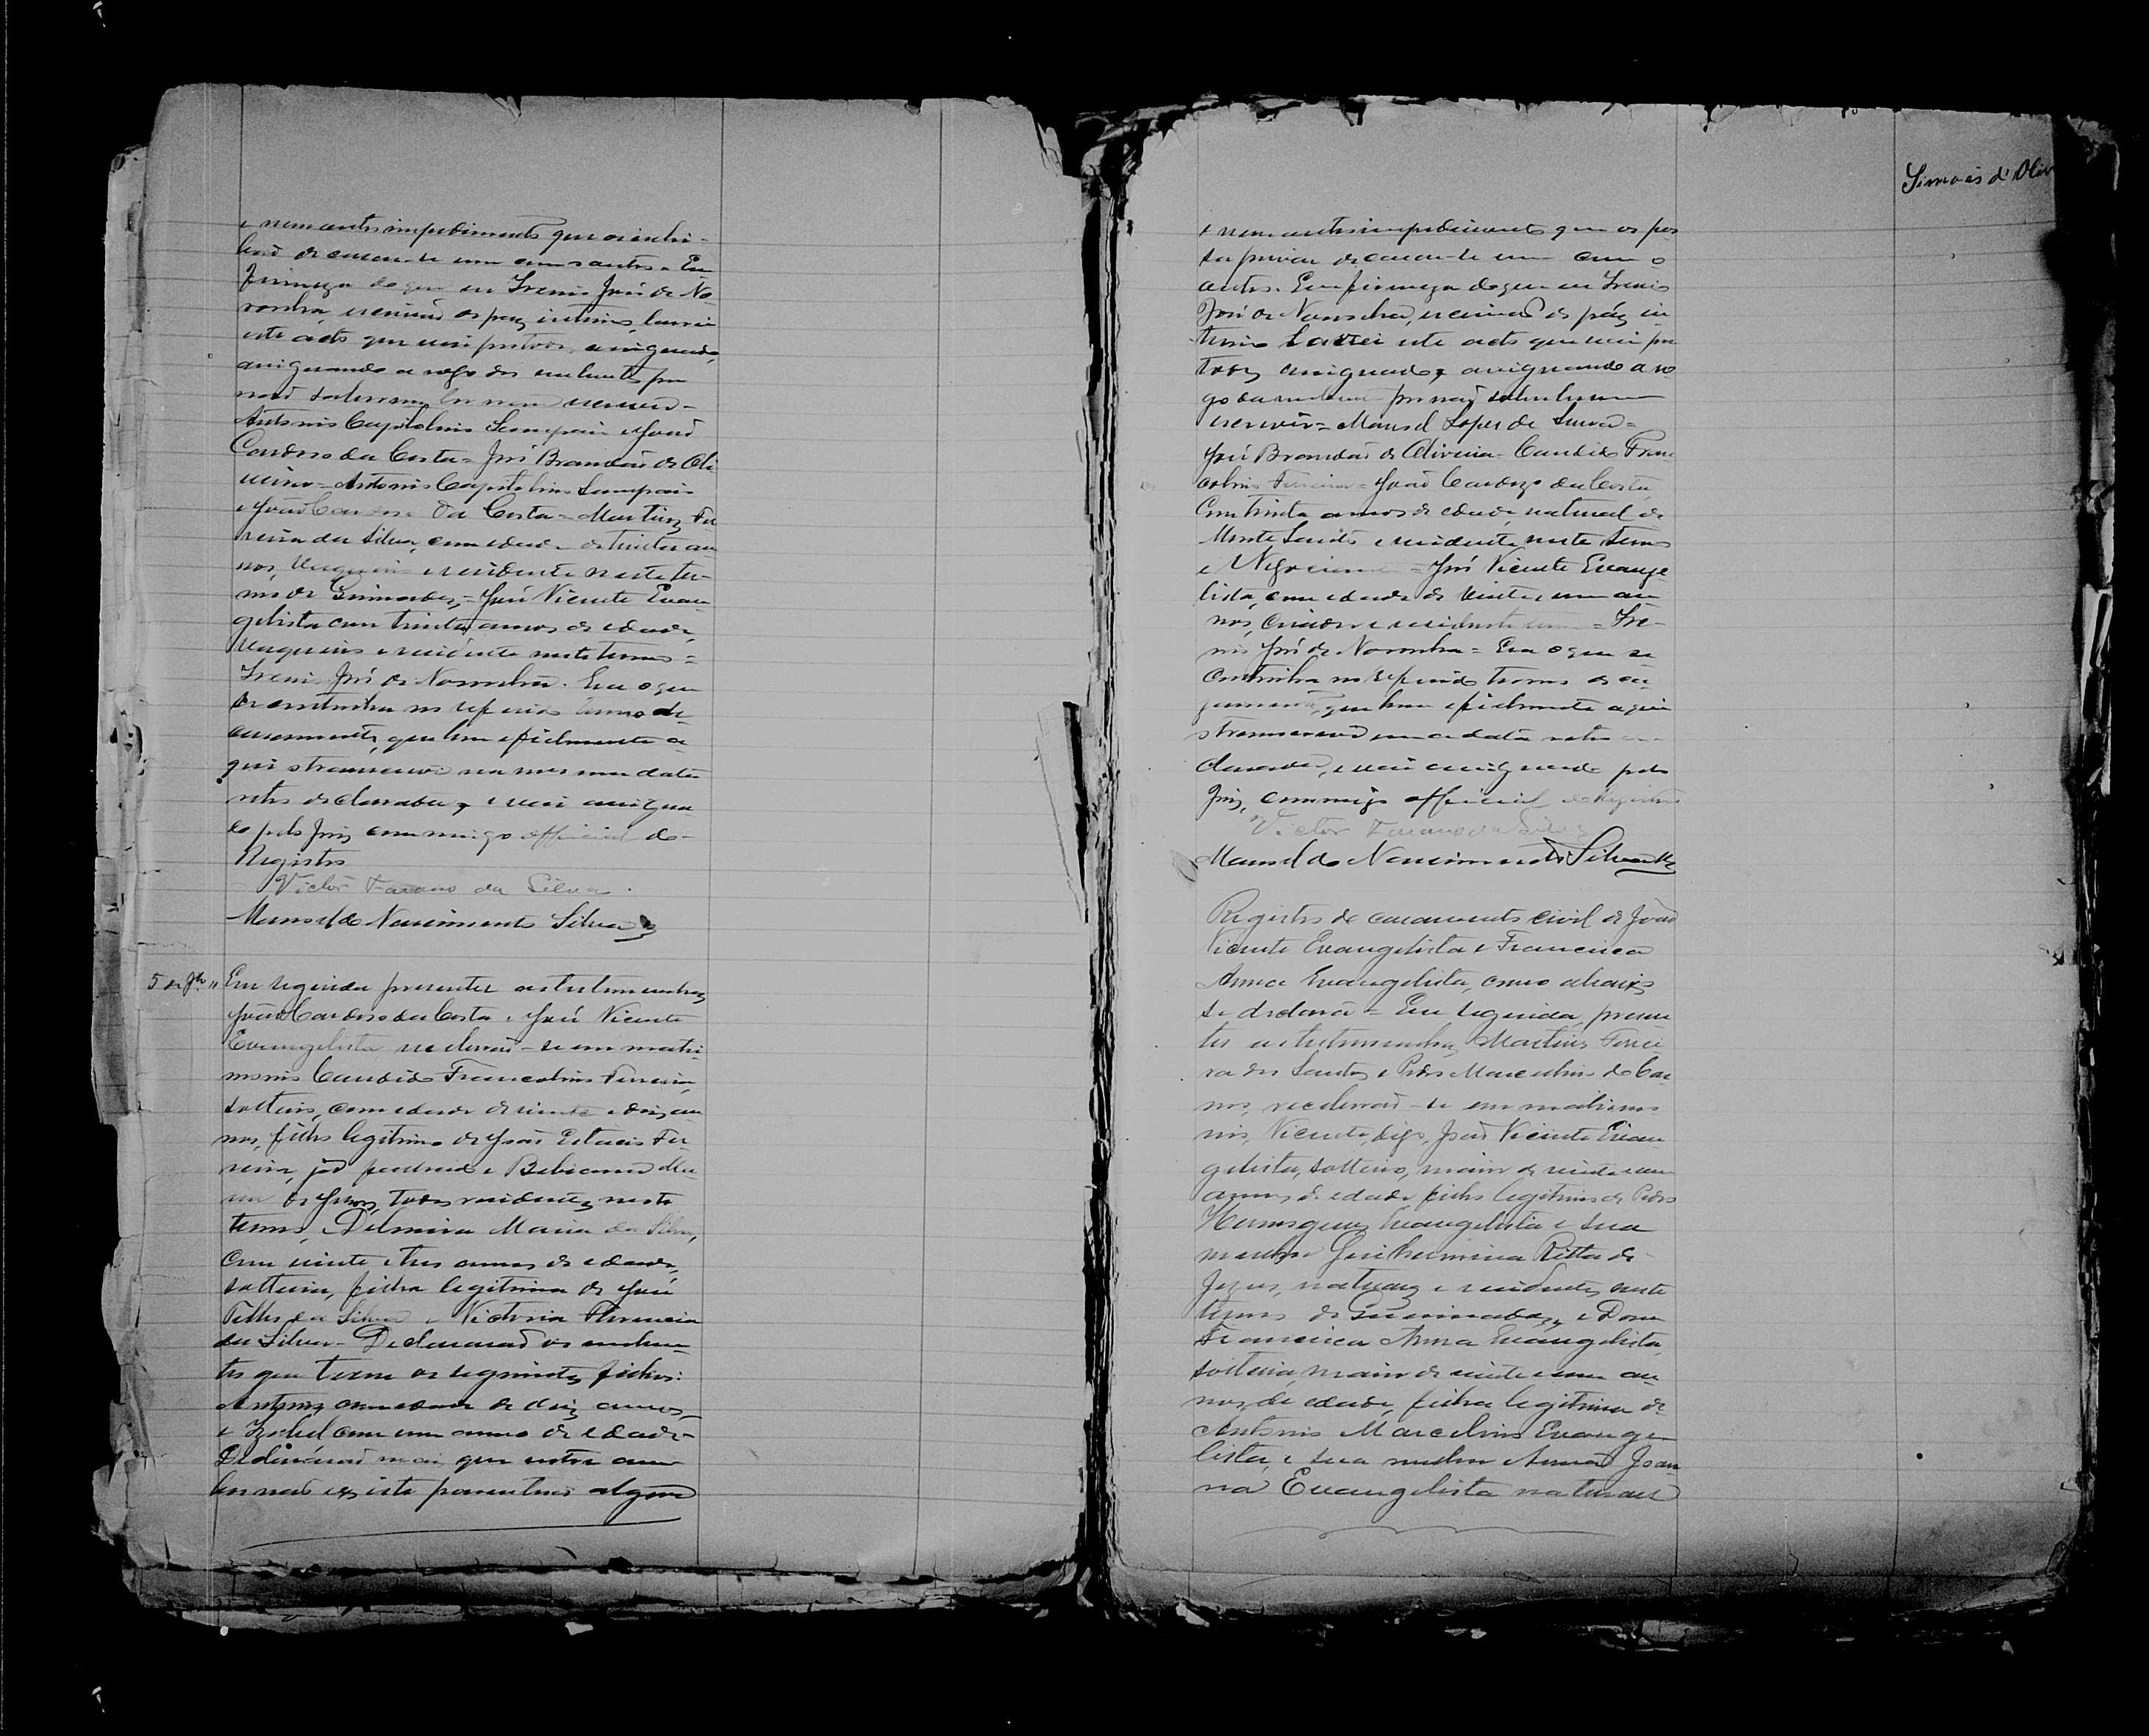 e nem outro impedimento que os inhi-
baõ de casar-se um com o outro. Em
firmeza do que eu Irenio José de No-
ronha, escrivaõ de paz interino, lavrei
este acto que vai por todos assignado,
assignando a rogo dos nubentes por
naõ saberem ler nem escrever-
Antonio Capitolino Sampaio e Joaõ
Cardoso da Costa = José Brandaõ de Oli
veira = Antonio Capitolino Sampaio
e Joaõ Cardoso da Costa = Martins Fer
reira da Silva, com edade de trinta an
nos, Vaqueiro e residente neste ter-
mo de = José Vicente Evan
gelista com trinta annos de edade,
Vaqueiro e residente neste termo =
Irenio José de Noronha. Era o que
se continha no referido termo de
casamento, que bem e fielmente a-
qui transcrevi na mesma data
retro declarada, e vai assigna
do pelo Juiz commigo official do-
Registro
Victor da Silva.
Manoel do Nascimento Silva
5 de
Em seguida presentes as testemunhas
Joaõ Cardoso da Costa e José Vicente
Evangelista receberaõ-se em matri-
monio Candido Francolino Ferreira,
solteiro, com edade de vinte e dois an
nos, filho legitimo de Joaõ Estacio Fer-
reira, já e Bibiana Ma
ria de Jesus, todos residentes neste
termo, Delmira Maria da Silva,
com vinte e tres annos de edade,
solteira, filha legitima de José
Telles da Silva e Victoria Florencia
da Silva- Declararaõ os nuben-
tes que teem os seguintes filhos:
Antonio, com edade de dois annos,
e Izabel com um anno de edade-
Declararaõ mais que entre am-
bos naõ existe parentesco algum
Simões d' Oliv
e nem outro impedimento que os pos
sa privar de casar-se um com o
outro. Em firmeza do que eu Irenio
José de Noronha, escrivaõ de páz in
terino lavrei este acto que vai por
todos assignado, assignando a ro
go da nubente por naõ saber ler nem
escrever = Manoel Lopes de Souza =
José Brandaõ de Oliveira = Candido Fran
colino Ferreira = Joaõ Cardozo da Costa,
com trinta annos de edade, natural de
Monte Santo e residente neste termo
e Negociante = José Vicente Evange
lista, com edade de vinte e um an
nos, criador e residente = Ire-
nio José de Noronha = Era o que se
continha no referido termo de ca-
samento, que bem e fielmente aqui
transcrevi em a data retro
declarada, e vai assignado pelo
Juiz, commigo official do registro
Victor da Silva
Manoel do Nascimento Silva
Registro de casamento civil de Joaõ
Vicente Evangelista e Francisca
Anna Evangelista, como abaixo
se declara = Em seguida, presen
tes as testemunhas Martins Ferrei
ra dos Santos e Pedro Marcelino do Car
mo, receberaõ-se em matrimo
nio, Vicente, digo, Joaõ Vicente Evan
gelista, solteiro, maior de vinte e um
annos de edade filho legitimo de Pedro
Hermogenes Evangelista e sua
mulher Guilhermina Ritta de
Jezus, naturaes e residentes neste
termo de e Dona
Francisca Anna Evangelista,
solteira, maior de vinte e um an
nos, de edade, filha legitima de
Antonio Marcelino Evange
lista, e sua mulher Anna Joan
na Evangelista naturaes